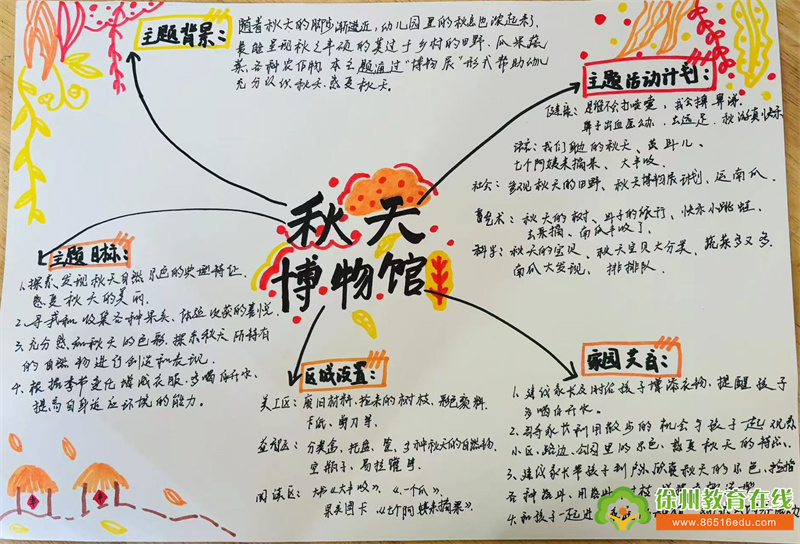 主题背景:
随着秋天的脚步渐进近,幼儿园里的秋意色浓起来,
最能呈现秋之丰硕的莫过于乡村的田野,瓜果蔬
菜、各种农作物,本主题通过"博物展"形式帮助幼儿
充分认识秋天、感受秋天。
主题活动计划:
健康:是谁不会打喷嚏,我会擤鼻涕,
鼻子出血怎么办,去远足,秋游真快乐
语言:我们触的秋天、黄耳儿、
七个阿姨来摘果、大丰收。
社会:参观秋天的田野、秋天博物展计划、运南瓜。
艺术:秋天的树、叶子的旅行、快乐小跳蛙、
去采摘、南瓜丰收了。
科学:秋天的宝贝、秋天宝贝大分类、蔬菜多又多、
南瓜大发现、排排队。
秋天
博物馆
主题目标:
1、探索、发现秋天自然景色的典型特征,
感受秋天的美丽。
2、寻找和收集各种果实,体验收获的喜悦。
3、充分感知秋天的色彩,探索秋天所特有
的自然物进行创造和表现。
4、根据季节变化增减衣服,多喝白开水,
提高自身适应环境的能力。
区域设置:
美工区:废旧材料、捡来的树枝、彩色颜料、
卡纸、剪刀等。
益智区:分类盒、托盘、筐、多种秋天的自然物、
空瓶子、易拉罐等。
阅读区:大书《大丰收》、《一个瓜》、
果实图卡、《七个阿姨来摘果》。
家园共育:
1、建议家长及时给孩子增添衣物,提醒孩子
多喝白开水。
2、引导家长利用散步的机会与孩子一起观察
小区、路边、公园里的景色,感受秋天的特点。
3、建议家长带孩子到户外欣赏秋天的景色,捡拾
各种落叶,用落叶
4、和孩子一起进
徐州教育在线
www.86516edu.com